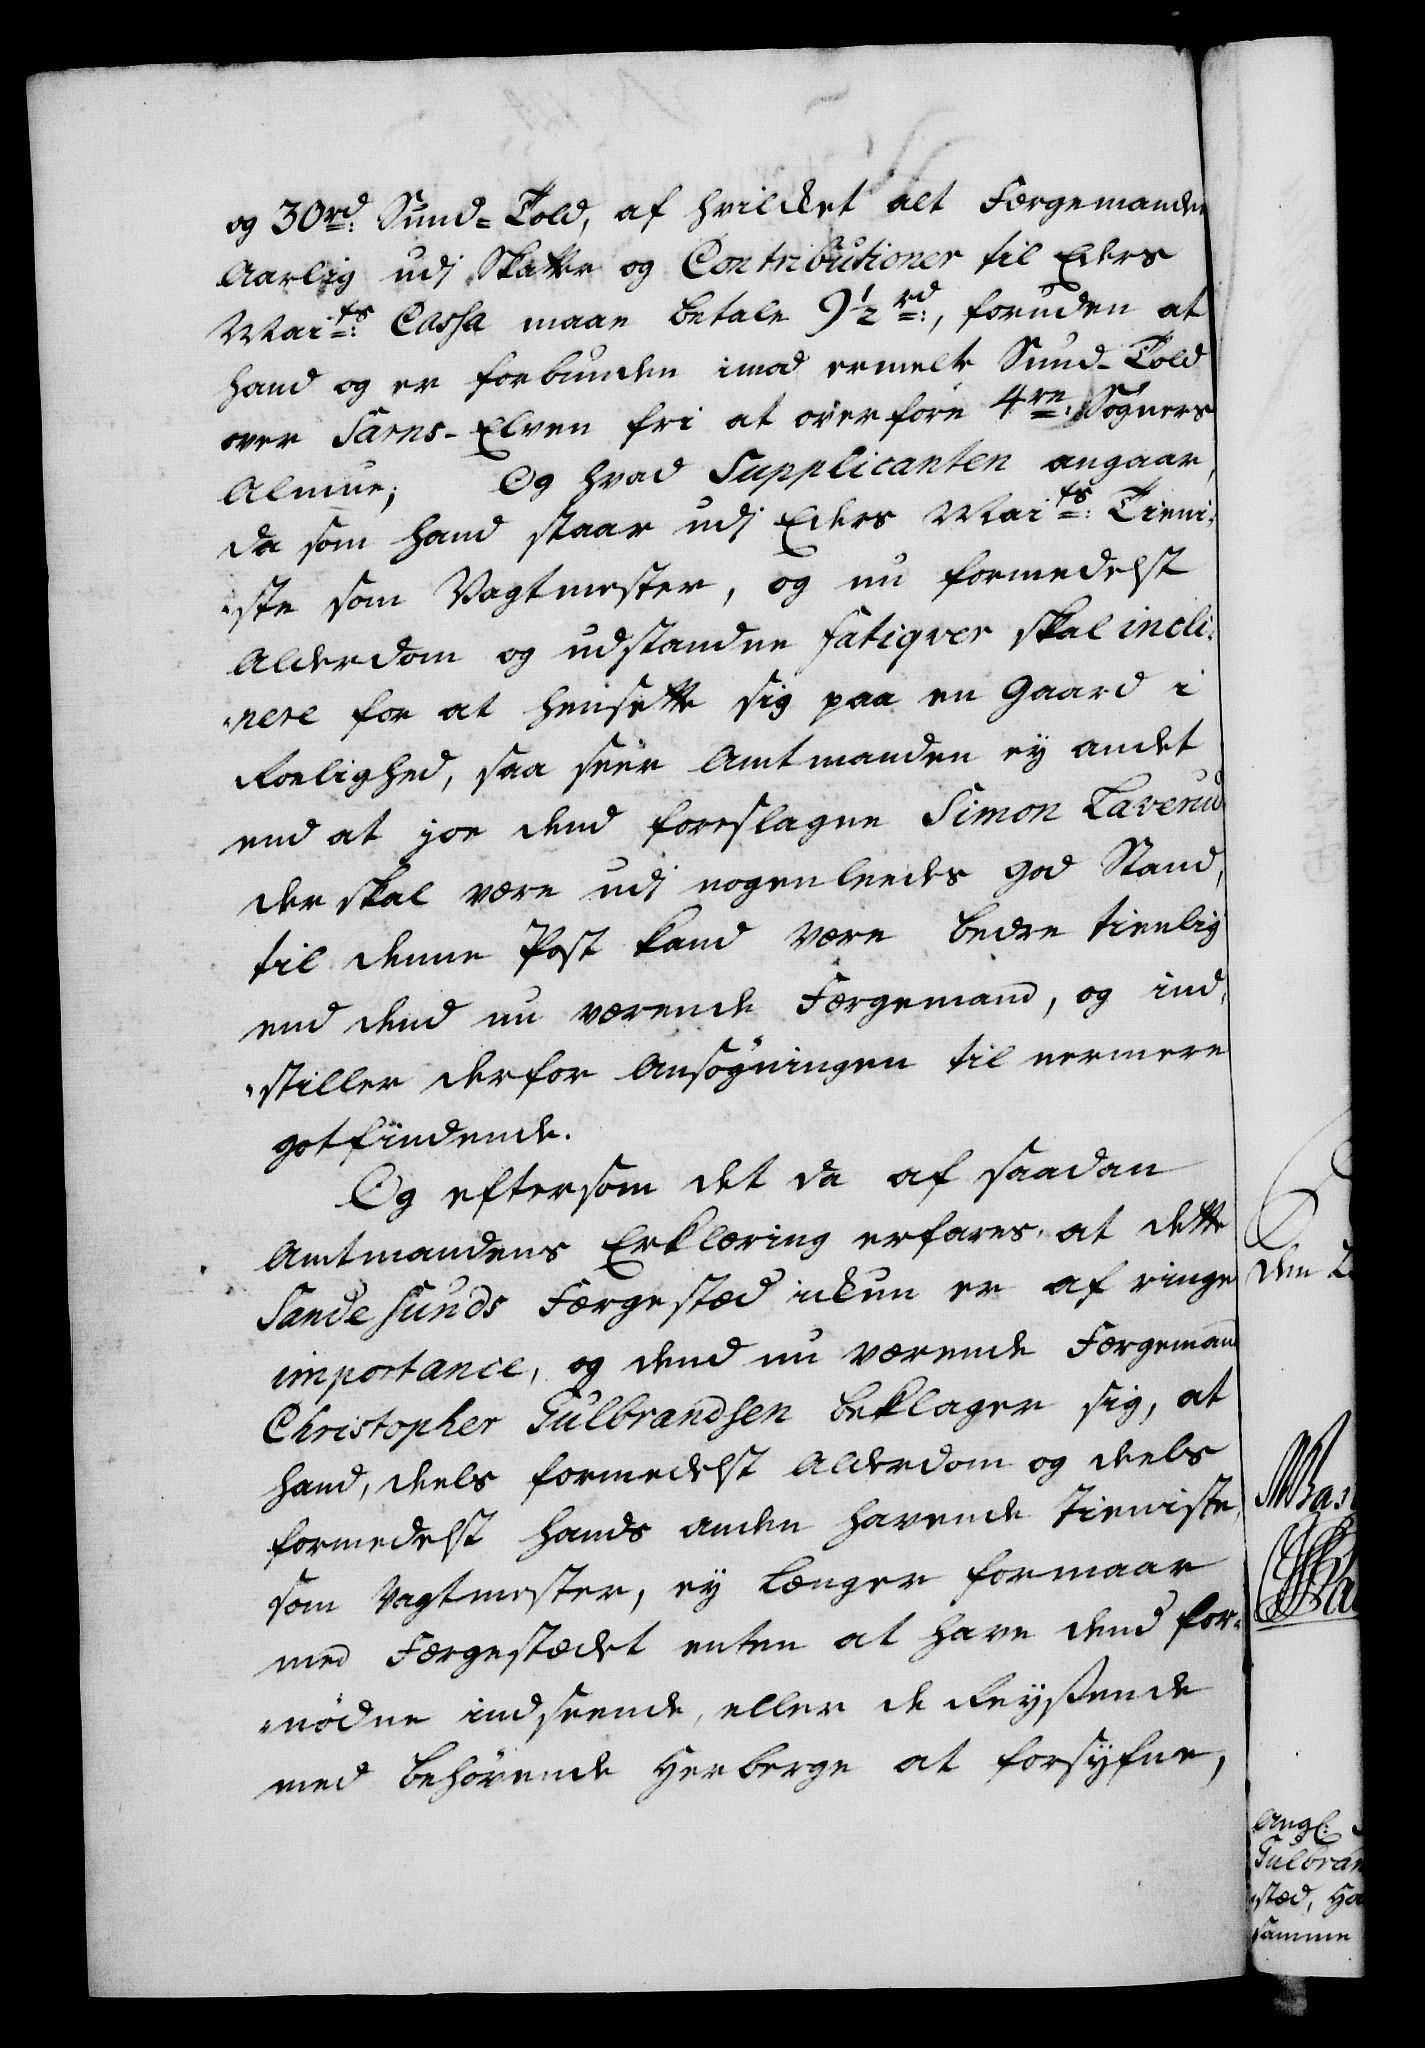 og 30rd: Sund-Told, af hvilcket alt Færgemanden
Aarlig udj Skatter og Contributioner til Eders
Maits: Cassa maae betale 9½ rd:, foruden at
hand og er forbunden imod ermelte Sund-Told
over Sarns-Elven fri at overføre 4re: Sogners
Almue; Og hvad Supplicanten angaar,
da som hand staar udj Eders Maits: Tieni-
ste som Vagtmester, og nu formedelst
Alderdom og udstandne fatiqver skal incli-
nere for at hensette sig paa en Gaard i
Roelighed, saa seer Amtmanden ey andet
end at joe dend foreslagne Simon Laverud
der skal være udj nogenleedes god Stand,
til denne Post kand være bedre tienlig
end dend nu værende Færgemand, og ind-
stiller derfor Ansøgningen til nermere
gotfindende.
Og eftersom det da af saadan
Amtmandens Erklæring erfares, at dette
Sandesunds Færgestæd ickun er af ringe
importance, og dend nu værende Færgemand
Christopher Gulbrandsen beklager sig, at
hand, deels formedelst Alderdom og deels
formedelst hands anden havende Tieniste,
som Vagtmester, ey længer formaar
med Færgestædet enten at have dend for-
nødne indseende, eller de Reysende
med behørende Herberge at forsyfne,
den
Angl:
Gulbran
stæd,
samme